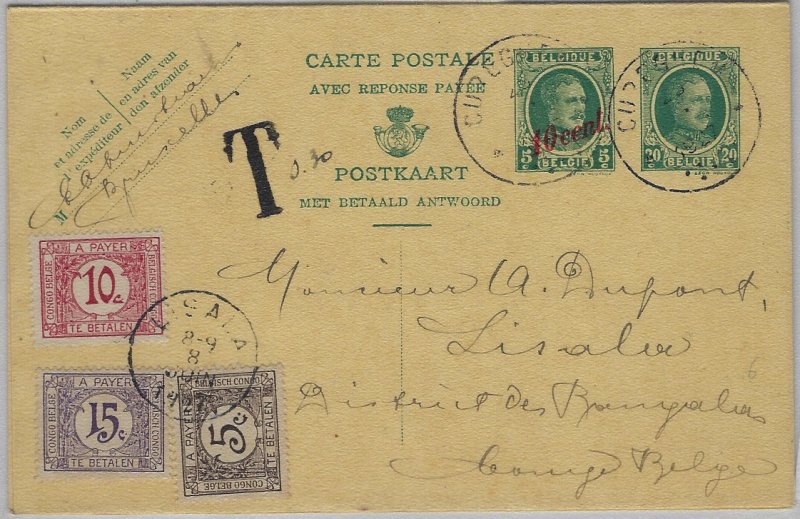 CARTE POSTALE
AVEC REPONSE PAYÉE
POSTKAART
MET BETAALD ANTWOORD
Nom
et adresse de
l'expéditeur
Naam
en adres van
den afzender
M
Bruxelles
T
0.30
BELGIQUE
10 cent.
5 5
BELGIE
BELGIQUE
20 20
BELGIE
CUREGHEM
Monsieur A. Dupont,
Lisala
District des Bangalas
Congo Belge
A PAYER
CONGO BELGE
10c
BELGISCH CONGO
TE BETALEN
LISALA
8-9
8
JUIN
A PAYER
CONGO BELGE
15c
BELGISCH CONGO
TE BETALEN
BELGISCH CONGO
A PAYER
5c
TE BETALEN
CONGO BELGE